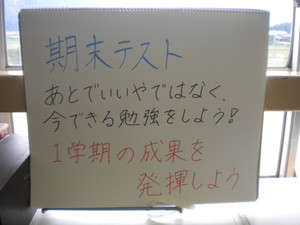 期末テスト
あとでいいやではなく、
今できる勉強をしよう!
1学期の成果を
発揮しよう